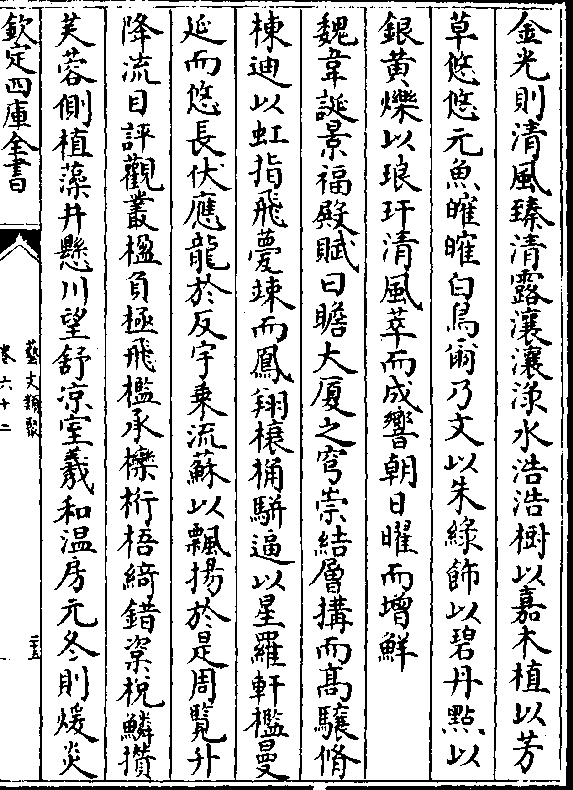 金光則清風臻清露瀼瀼淥水浩浩樹以嘉木植以芳
草悠悠元魚㿥㿥白鳥爾乃文以朱綠飾以碧丹點以
銀黃爍以琅玕清風萃而成響朝日曜而增鮮
魏韋誕景福殿賦曰瞻大厦之穹崇結層搆而髙驤脩
棟迪以虹指飛甍竦而鳳翔榱桷駢逼以星羅軒檻曼
延而悠長伏應龍於反宇乗流蘇以飄揚於是周覧升
降流目評觀叢楹負極飛檻承櫟桁梧綺錯楶梲鱗攢
芙蓉側植藻井懸川望舒凉室羲和温房元冬則煖炎
欽定四庫全書
藝文類聚
卷六十二
二五